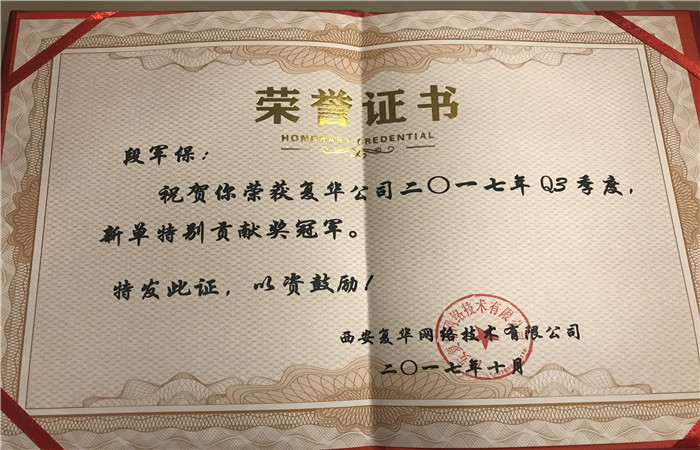 荣誉证书
HONORARY CREDENTIAL
段军保：
祝贺你荣获复华公司二〇一七年Q3季度，
新单特别贡献奖冠军。
特发此证，以资鼓励！
西安复华网络技术有限公司
二〇一七年十月